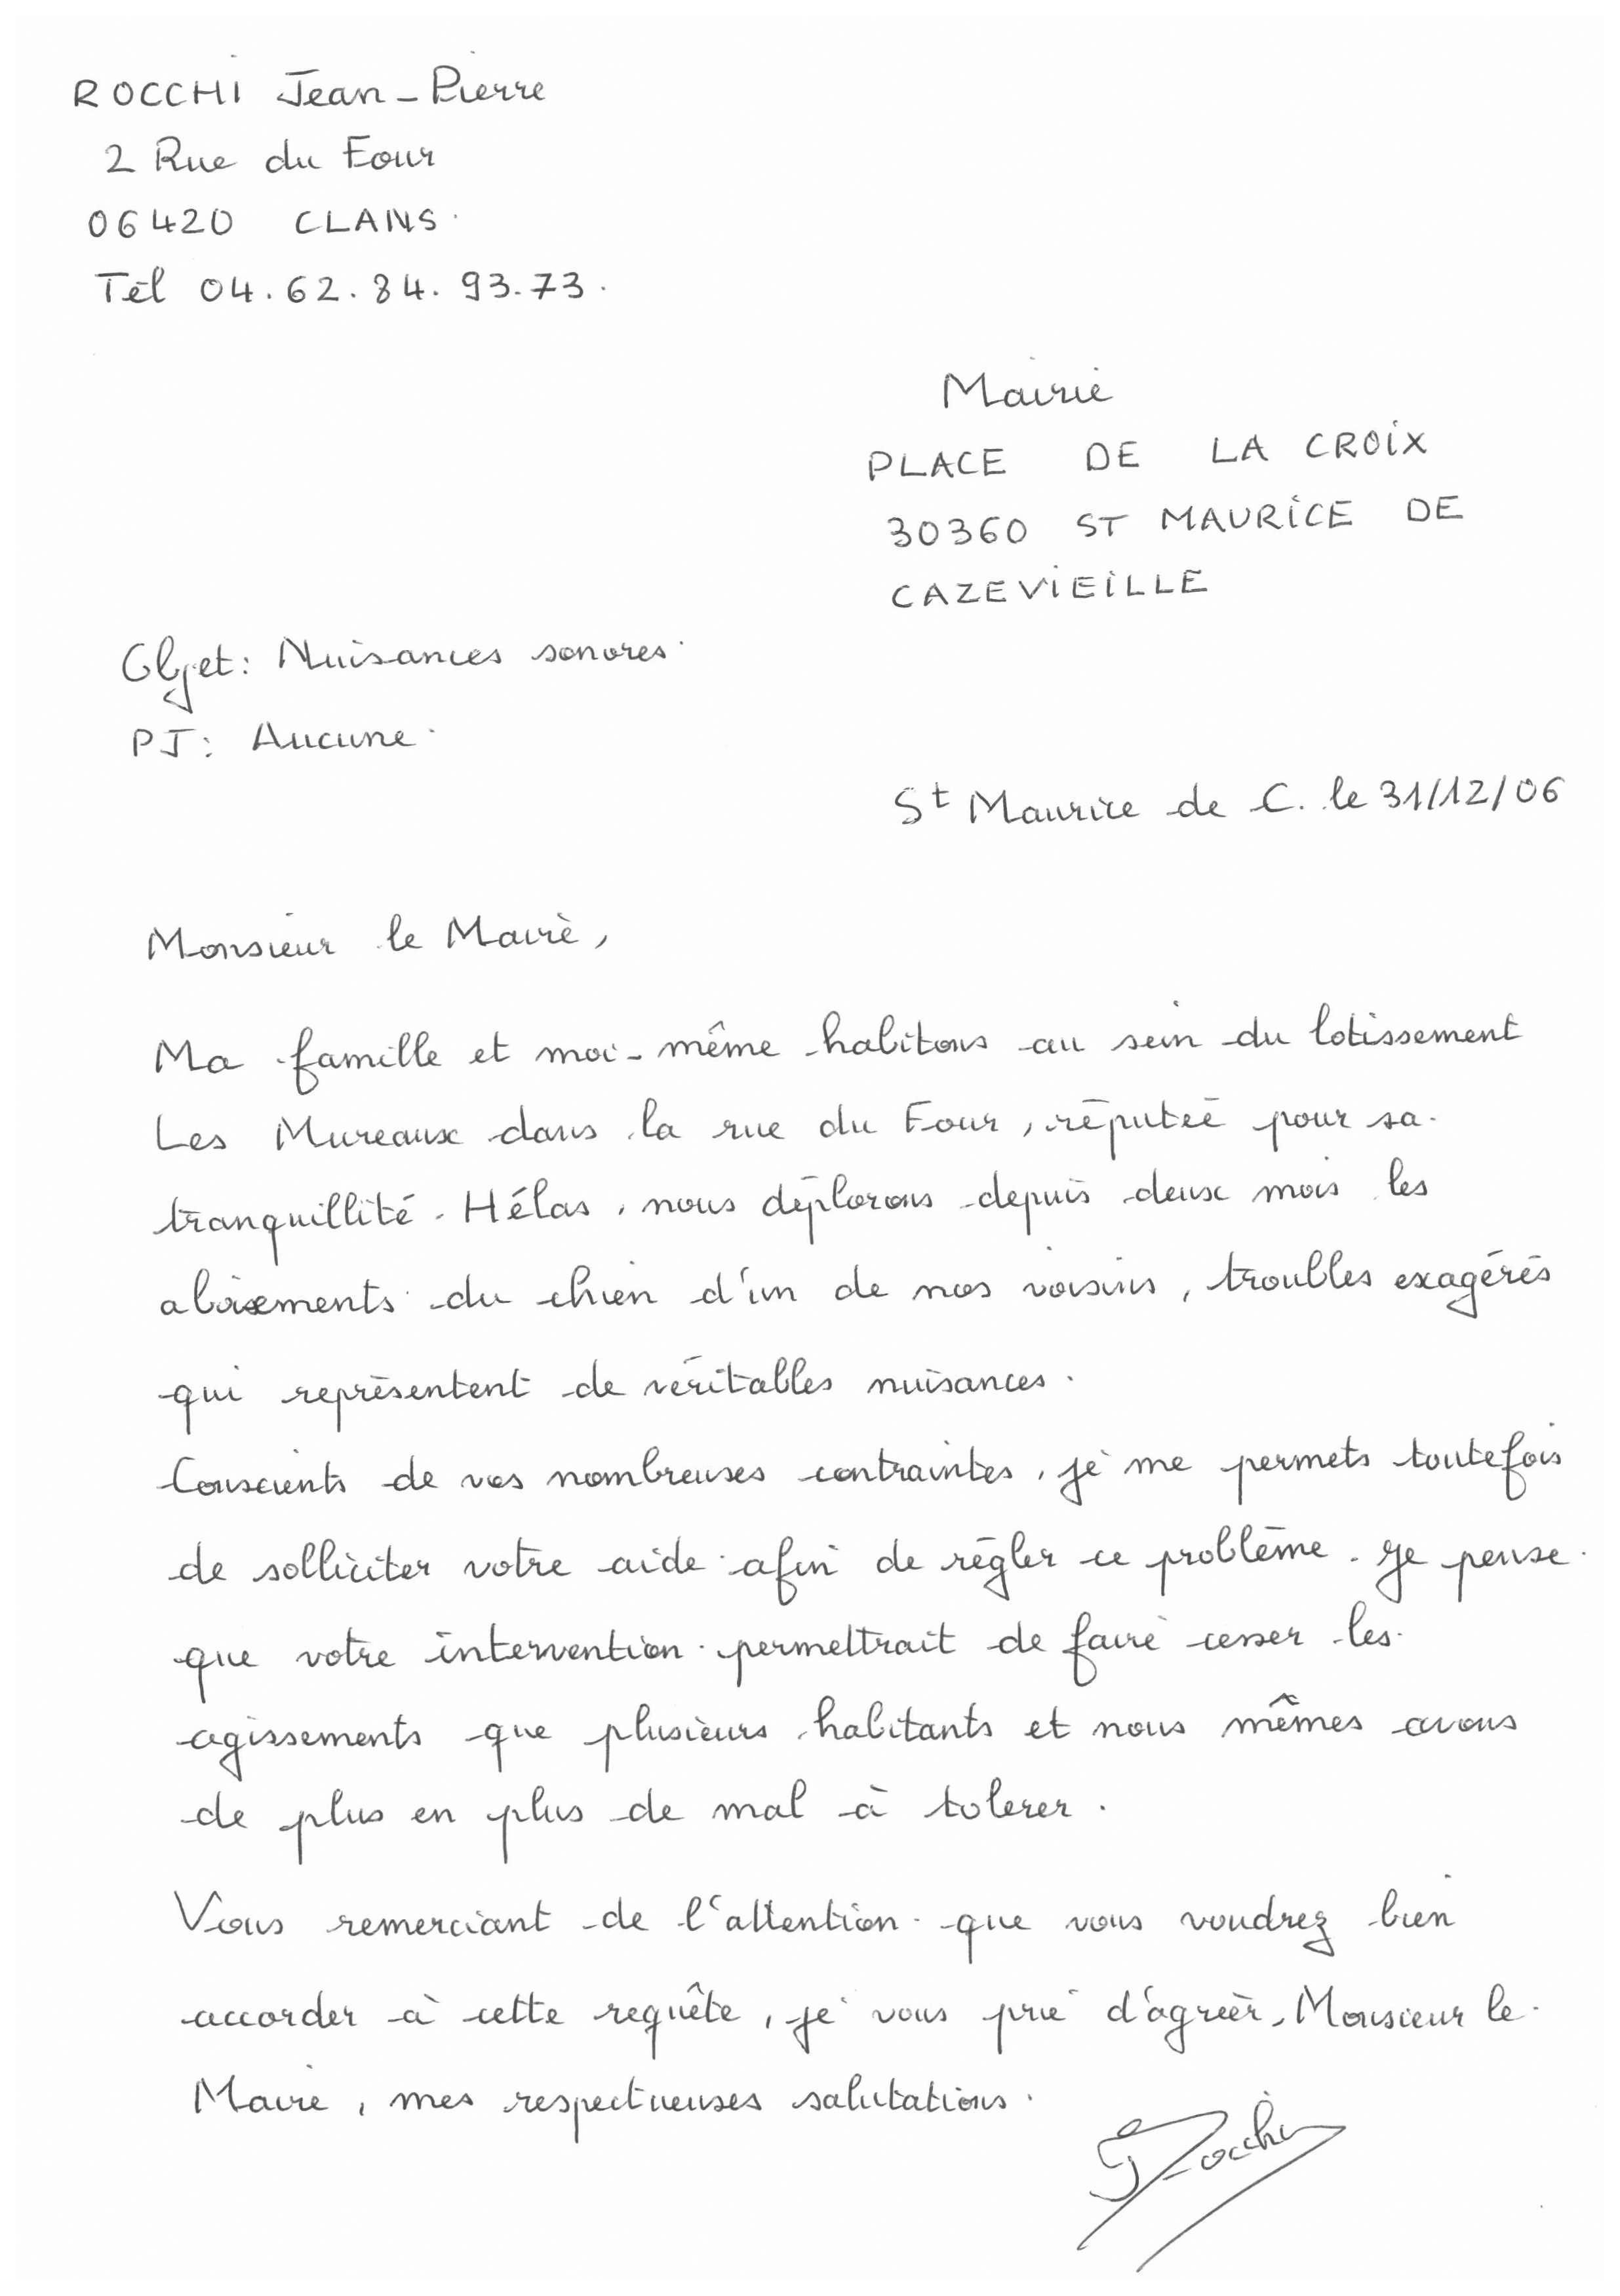 ROCCHI Jean-Pierre
2 Rue du Four
06420 CLANS.
Tél 04.62.84.93.73.
Mairie
PLACE DE LA CROIX
30360 ST MAURICE DE
CAZEVIEILLE
Objet: Nuisances sonores.
PJ: Aucune.
St Maurice de C. le 31/12/06
Monsieur le Maire,
Ma famille et moi-même habitons au sein du lotissement
Les Mureaux dans la rue du Four, réputée pour sa
tranquillité. Hélas, nous déplorons depuis deux mois les
aboiements du chien d'un de nos voisins, troubles exagérés
qui représentent de véritables nuisances.
Conscients de vos nombreuses contraintes, je me permets toutefois
de solliciter votre aide afin de régler ce problème. Je pense
que votre intervention permettrait de faire cesser les
agissements que plusieurs habitants et nous mêmes avons
de plus en plus de mal à tolerer.
Vous remerciant de l'attention que vous voudrez bien
accorder à cette requête, je vous prie d'agréer, Monsieur le
Maire, mes respectueuses salutations.
JRocchi